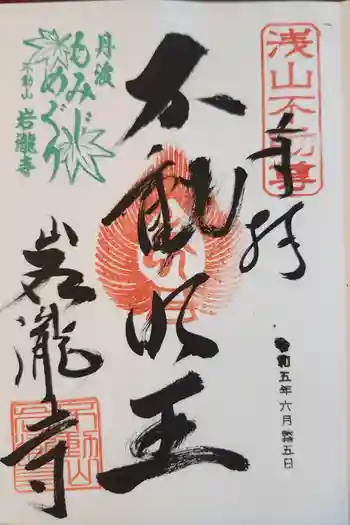 浅山不動尊
奉拝
令和五年六月弐五日
不動明王
丹波
もみじ
めぐり
不動山 岩瀧寺
岩瀧寺